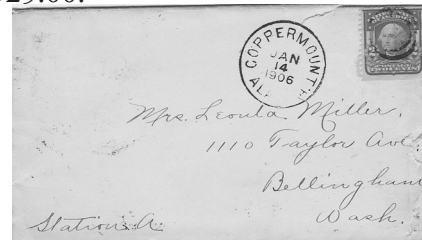 COPPERMOUNT
JAN
14
1906
Mrs. Leonta Miller,
1110 Taylor Ave.
Bellingham
Wash.
Station A.